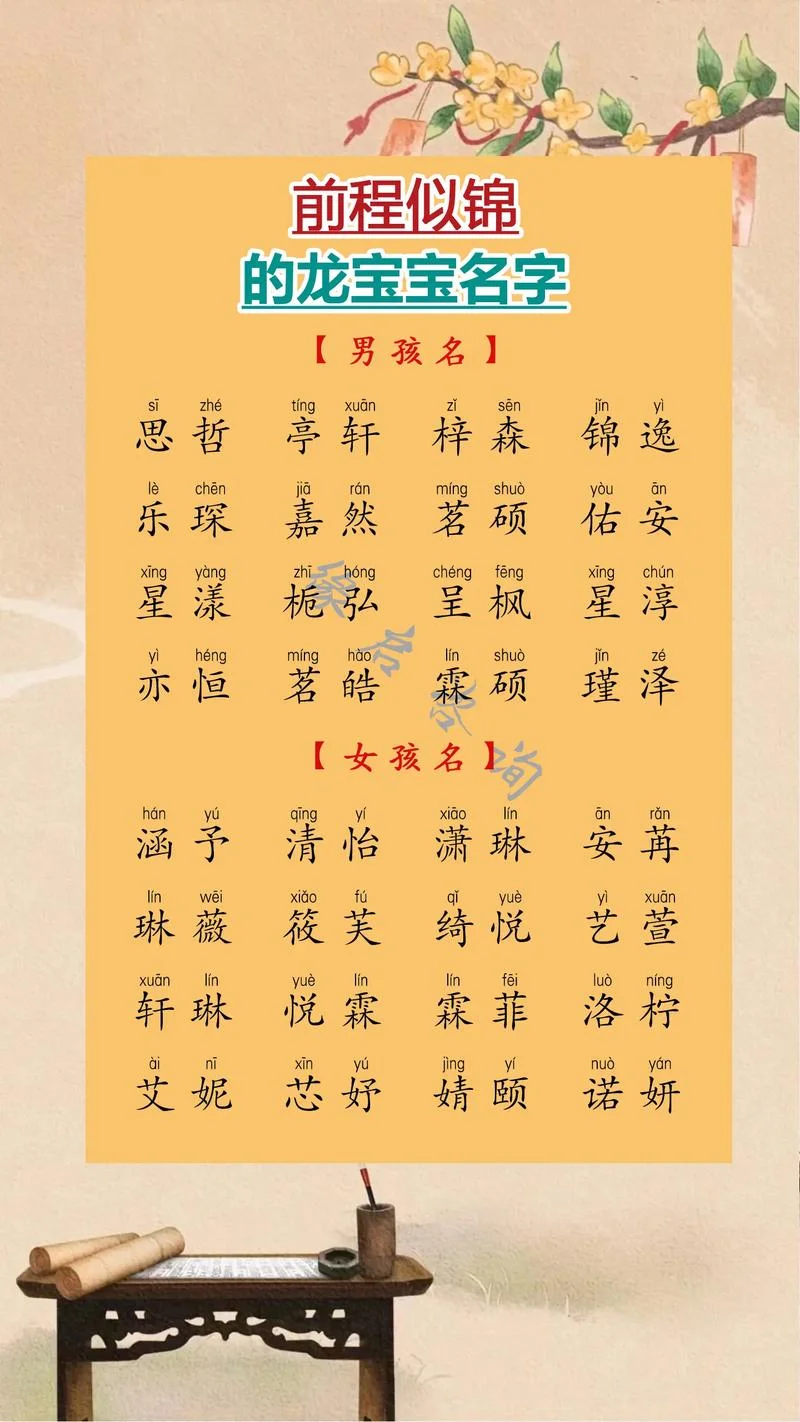 前程似锦
的龙宝宝名字
【男孩名】
sī zhé tíng xuān zǐ sēn jǐn yì
思哲 亭轩 梓森 锦逸
lè chēn jiā rán míng shuò yòu ān
乐琛 嘉然 茗硕 佑安
xīng yàng zhī hóng chéng fēng xīng chún
星漾 栀弘 呈枫 星淳
yì héng míng hào lín shuò jǐn zé
亦恒 茗皓 霖硕 瑾泽
【女孩名】
hán yú qīng yí xiāo lín ān rǎn
涵予 清怡 潇琳 安苒
lín wēi xiǎo fú qǐ yuè yì xuān
琳薇 筱芙 绮悦 艺萱
xuān lín yuè lín lín fēi luò níng
轩琳 悦霖 霖菲 洛柠
ài nī xīn yú jìng yí nuò yán
艾妮 芯妤 婧颐 诺妍